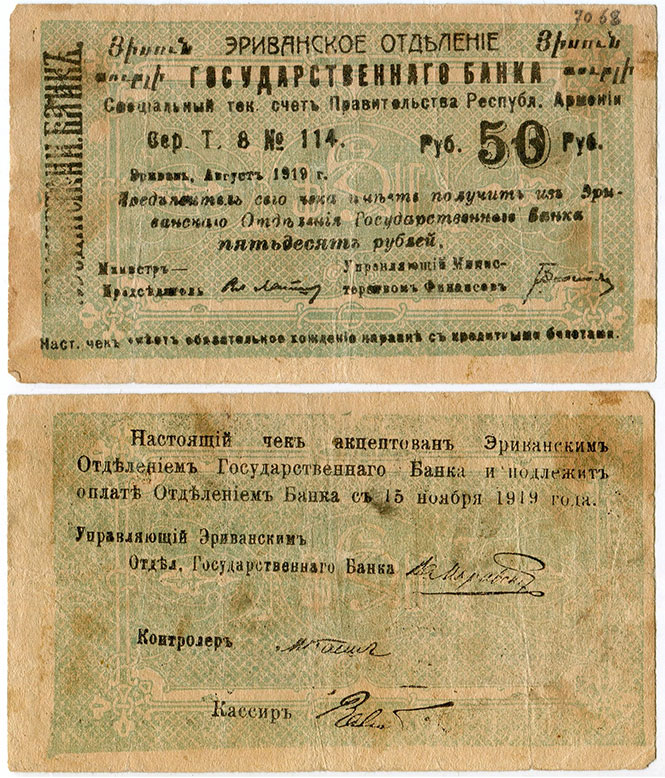 7068
Յիսուն ЭРИВАНСКОЕ ОТДѢЛЕНІЕ Յիսուն
ռուբլի ГОСУДАРСТВЕННАГО БАНКА ռուբլի
Спеціальный тек. счетъ Правительства Республ. Арменіи
Сер. Т. 8 № 114. Руб. 50 Руб.
Эривань, Августъ 1919 г.
Предъявитель сего чека имѣетъ получить изъ Эри-
ванскаго Отдѣленія Государственнаго Банка
пятьдесятъ рублей.
Министръ—
Предсѣдатель
Управляющій Минис-
терствомъ Финансовъ
Наст. чекъ имѣетъ обязательное хожденіе наравнѣ съ кредитными билетами.
Настоящій чекъ акцептованъ Эриванскимъ
Отдѣленіемъ Государственнаго Банка и подлежитъ
оплатѣ Отдѣленіемъ Банка съ 15 ноября 1919 года.
Управляющій Эриванскимъ
Отдѣл. Государственнаго Банка
Контролеръ
Кассиръ